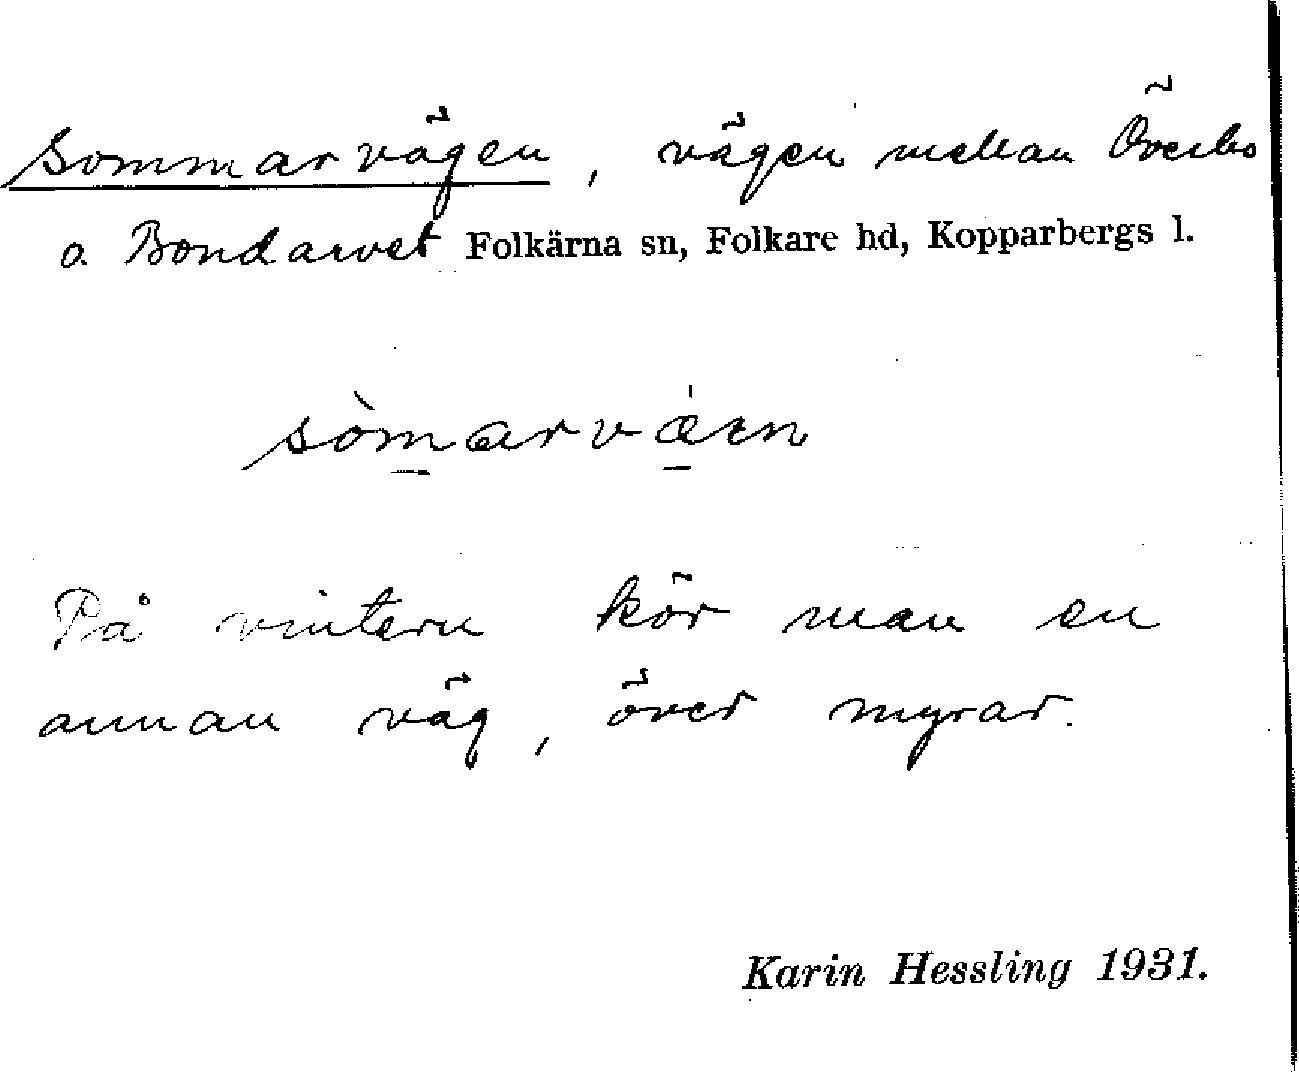 Sommarvägen, vägen mellan Överbo
o. Bondarvet Folkärna sn, Folkare hd, Kopparbergs l.
sòmarvǽen
På vintern kör man en
annan väg, över myrar.
Karin Hessling 1931.